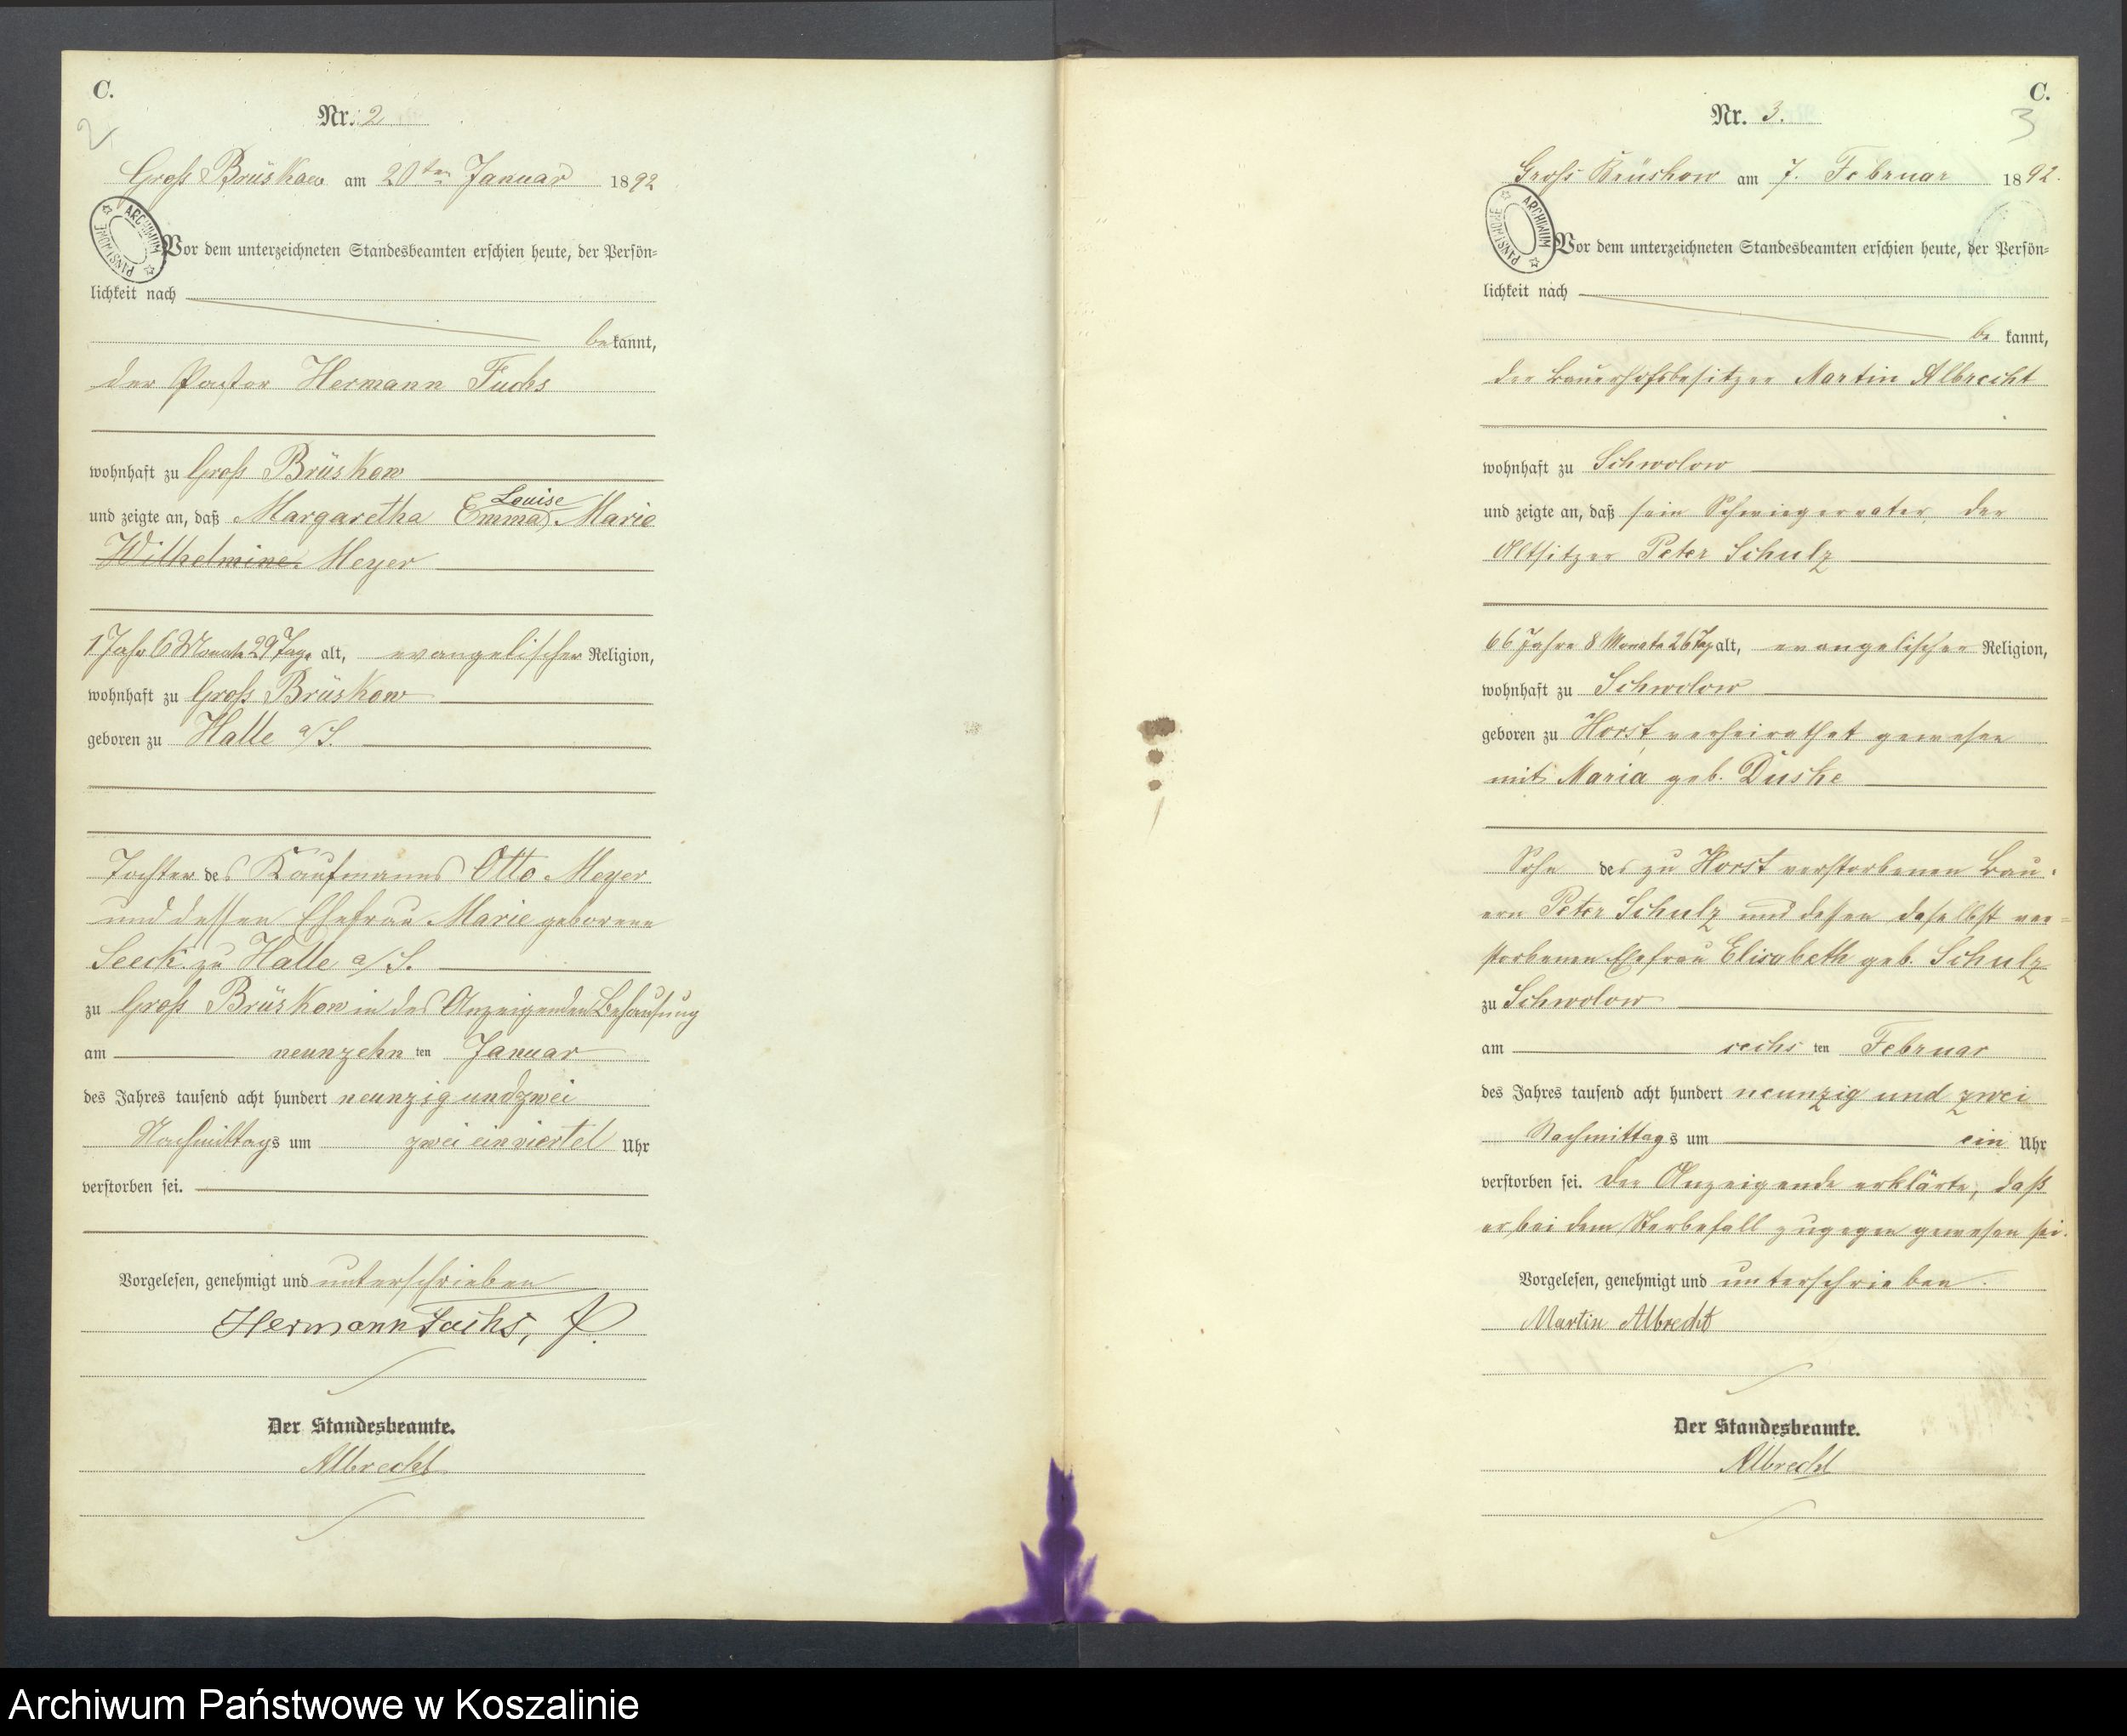 C.
2
Nr. 2
Groß Brüskow am 20ten Januar 1892
ARCHIWUM PAŃSTWOWE
Vor dem unterzeichneten Standesbeamten erschien heute, der Persön-
lichkeit nach
bekannt,
der Pastor Hermann Fuchs
wohnhaft zu Groß Brüskow
Louise
und zeigte an, daß Margaretha Emma, Marie
Wilhelmine Meyer
1 Jahr 6 Monate 29 Tage alt, evangelischer Religion,
wohnhaft zu Groß Brüskow
geboren zu Halle a/S.
Tochter des Kaufmanns Otto Meyer
und dessen Ehefrau Marie geborene
Seeck zu Halle a/S.
zu Groß Brüskow in des Anzeigenden Behausung
am neunzehn ten Januar
des Jahres tausend acht hundert neunzig und zwei
Nachmittags um zwei ein viertel Uhr
verstorben sei.
Vorgelesen, genehmigt und unterschrieben
Hermann Fuchs, P.
Der Standesbeamte.
Albrecht
C.
3
Nr. 3.
Gross Brüskow am 7. Februar 1892.
ARCHIWUM PAŃSTWOWE
Vor dem unterzeichneten Standesbeamten erschien heute, der Persön-
lichkeit nach
be kannt,
der Bauerhofsbesitzer Martin Albrecht
wohnhaft zu Schwolow
und zeigte an, daß sein Schwiegervater, der
Altsitzer Peter Schulz
66 Jahre 8 Monate 26 Tag alt, evangelischer Religion,
wohnhaft zu Schwolow
geboren zu Horst, verheirathet gewesen
mit Maria geb. Duske
Sohn des zu Horst verstorbenen Bau-
ern Peter Schulz und dessen daselbst ver-
storbenen Ehefrau Elisabeth geb. Schulz
zu Schwolow
am sechs ten Februar
des Jahres tausend acht hundert neunzig und zwei
Nachmittags um ein Uhr
verstorben sei. Der Anzeigende erklärte, daß
er bei dem Sterbefall zugegen gewesen sei.
Vorgelesen, genehmigt und unterschrieben.
Martin Albrecht
Der Standesbeamte.
Albrecht
Archiwum Państwowe w Koszalinie